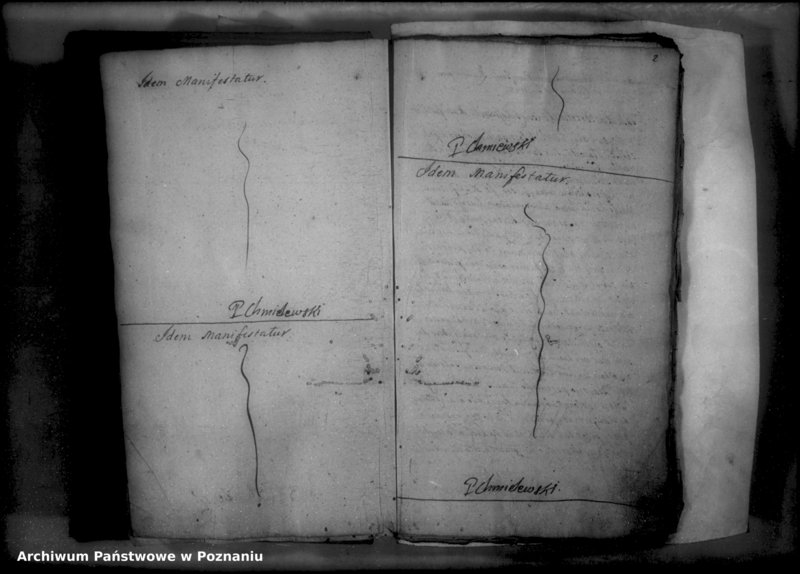 Idem Manifestatur.
P Chmielewski
Idem Manifestatur
2
P Chmielewski
Idem Manifestatur.
P Chmielewski.
Archiwum Państwowe w Poznaniu